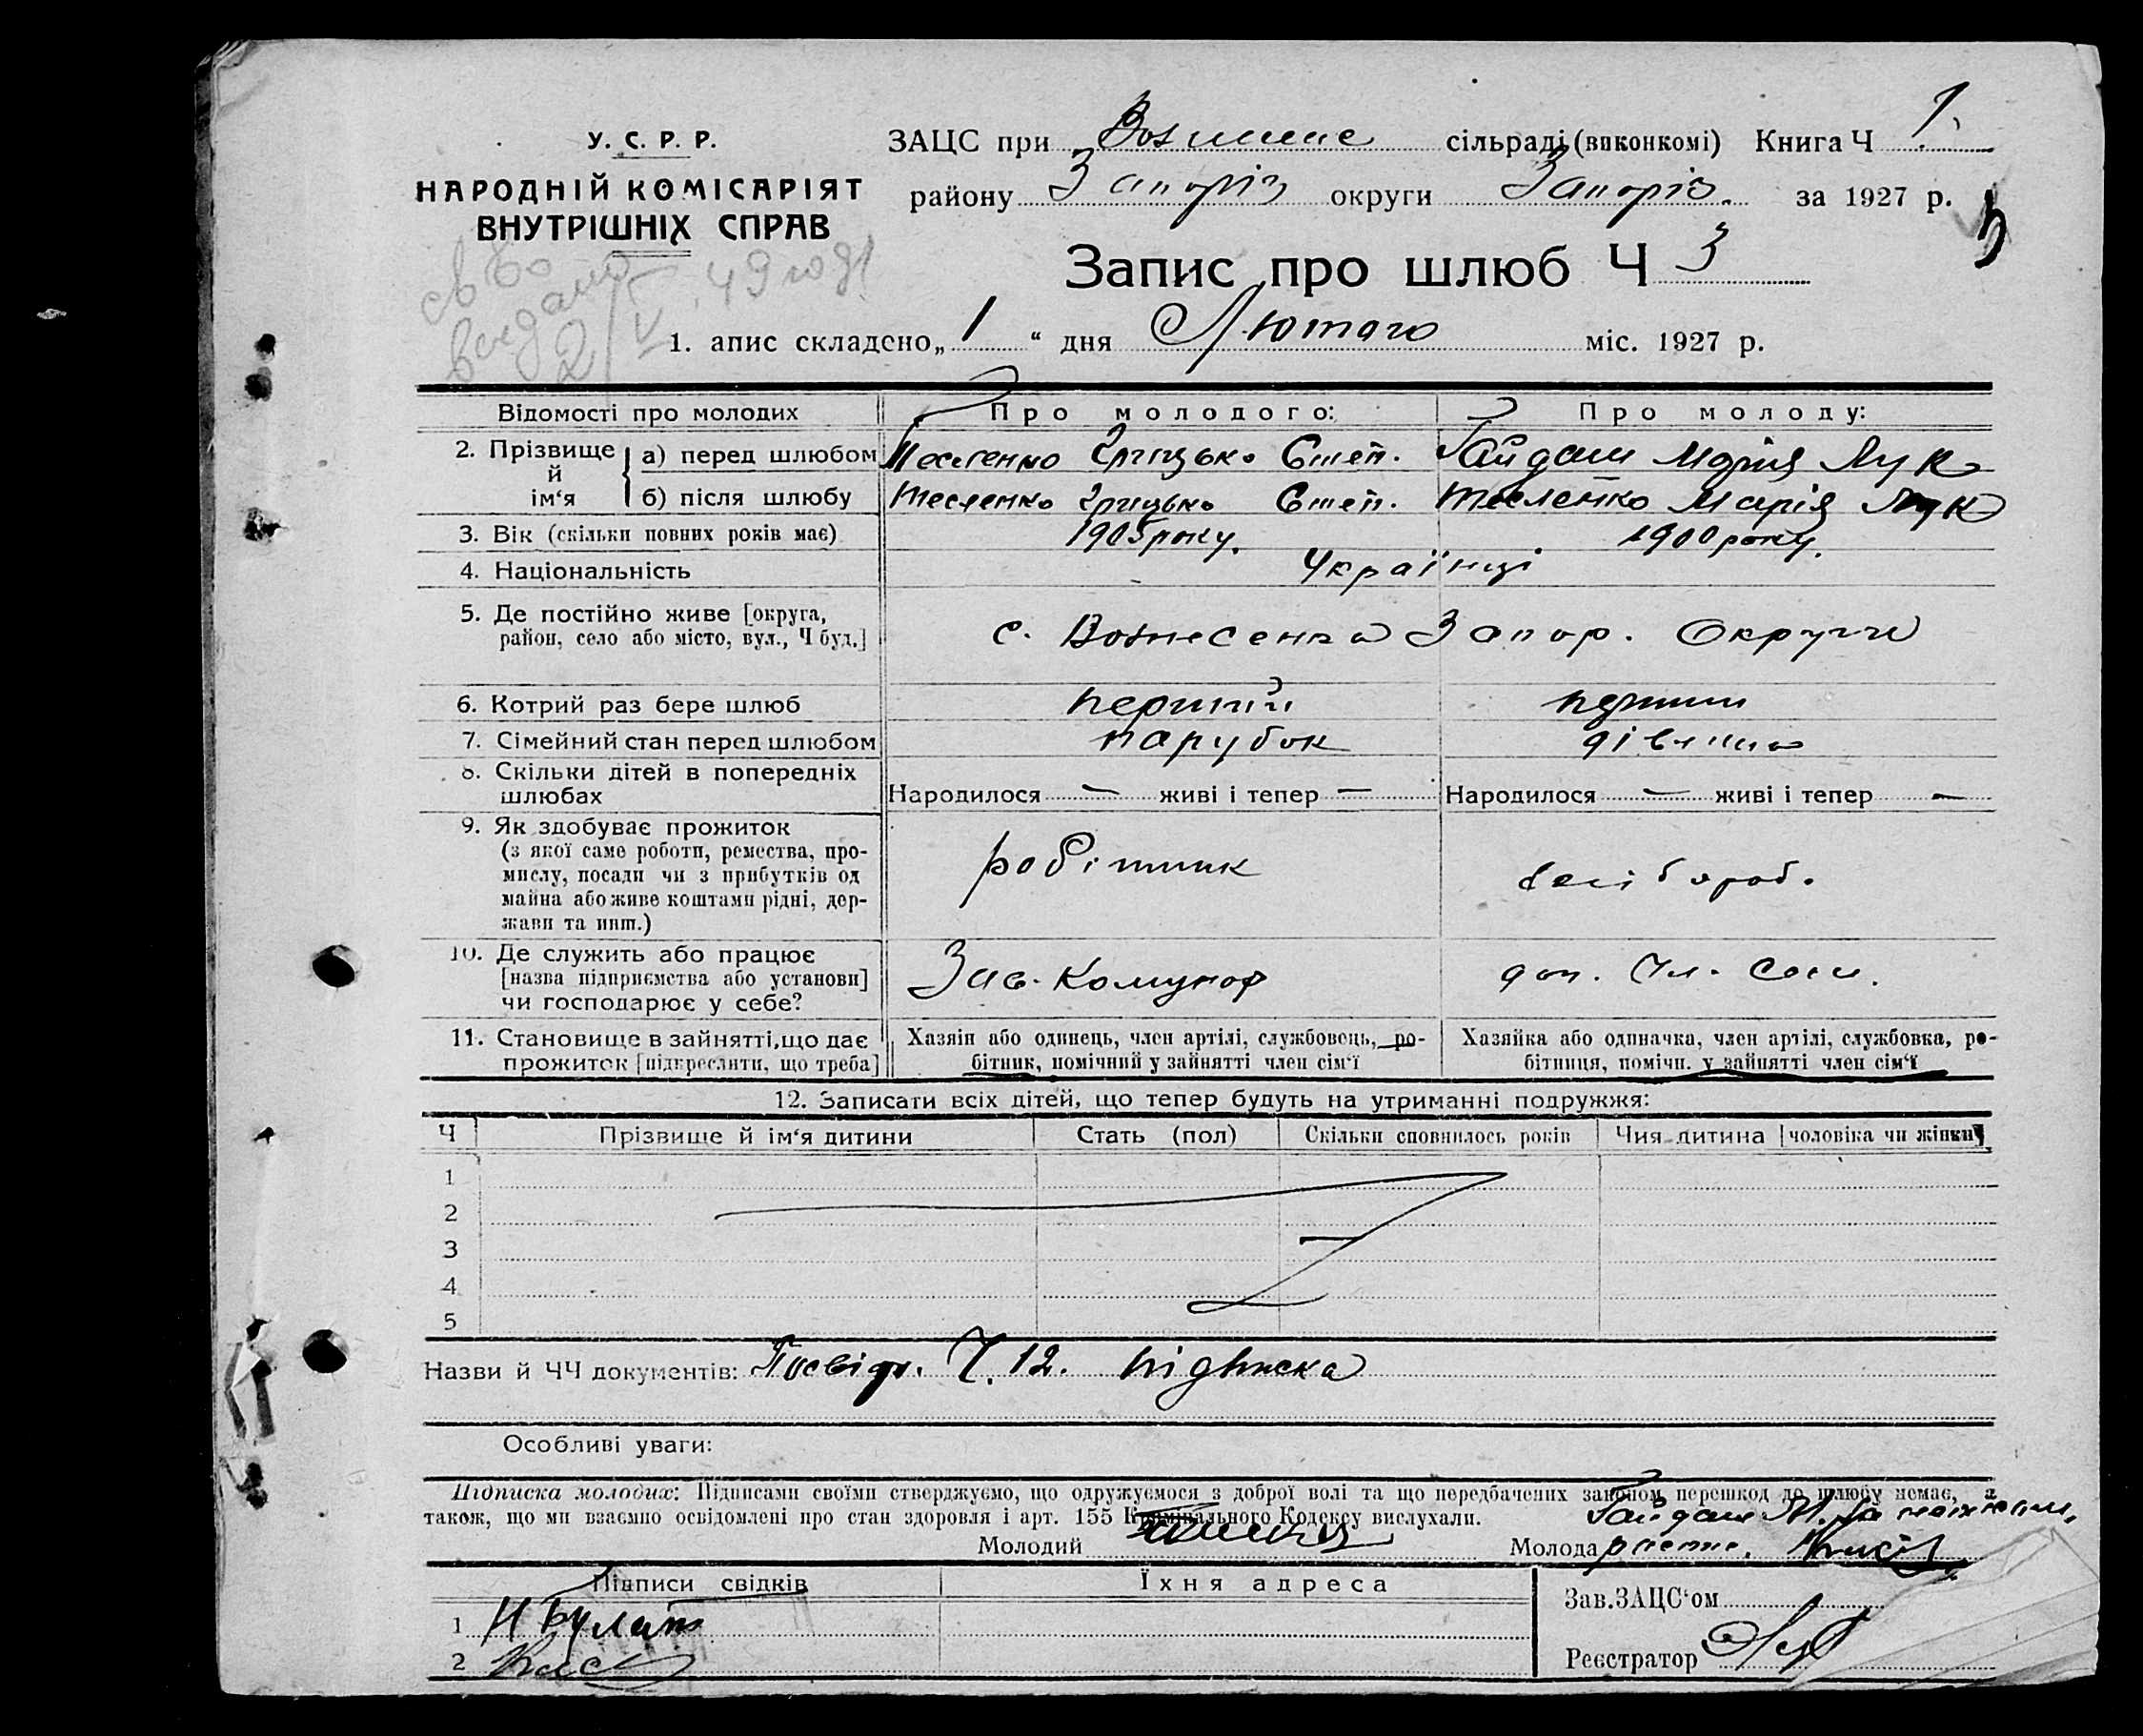 У. С. Р. Р.
НАРОДНІЙ КОМІСАРІЯТ
ВНУТРІШНІХ СПРАВ
ЗАЦС при сільраді (виконкомі) Книга Ч 1.
району Запоріз округи Запоріз. за 1927 р.
Запис про шлюб Ч 3
49 года
2/V
1. апис складено „1“ дня Лютого міс. 1927 р.
Відомості про молодих Про молодого: Про молоду:
2. Прізвище й ім‘я
а) перед шлюбом Тесленко Грицько Степ. Гайдаш Марія Лук
б) після шлюбу Тесленко Грицько Степ. Тесленко Марія Лук
3. Вік (скільки повних років має) 1905 року. 1900 року.
4. Національність Українці
5. Де постійно живе [округа,
район, село або місто, вул., Ч буд.] с. Вознесенка Запор. Округи
6. Котрий раз бере шлюб перший перший
7. Сімейний стан перед шлюбом парубок дівчина
8. Скільки дітей в попередніх
шлюбах Народилося — живі і тепер — Народилося — живі і тепер —
9. Як здобуває прожиток
(з якої саме роботи, ремества, про-
мислу, посади чи з прибутків од
майна або живе коштами рідні, дер-
жави та инш.)
робітник
10. Де служить або працює
[назва підприємства або установи]
чи господарює у себе?
Зав. Комунар доп. Чл. Сем.
11. Становище в зайнятті, що дає
прожиток [підкреслити, що треба]
Хазяїн або одинець, член артілі, службовець, ро-
бітник, помічний у зайнятті член сім‘ї
Хазяйка або одиначка, член артілі, службовка, ро-
бітниця, помічн. у зайнятті член сім‘ї
12. Записати всіх дітей, що тепер будуть на утриманні подружжя:
Ч Прізвище й ім‘я дитини Стать (пол) Скільки сповнилось років Чия дитина [чоловіка чи жінки]
1
2
3
4
5
Назви й ЧЧ документів: Посвідч. Ч. 12. підписка
Особливі уваги:
Підписка молодих: Підписами своїми стверджуємо, що одружуємося з доброї волі та що передбачених законом перешкод до шлюбу немає, а
також, що ми взаємно освідомлені про стан здоровля і арт. 155 Кримінального Кодексу вислухали.
Гайдаш М. за
Молодий Молода
Підписи свідків Їхня адреса
1 Н Булат
2
Зав. ЗАЦС‘ом
Реєстратор